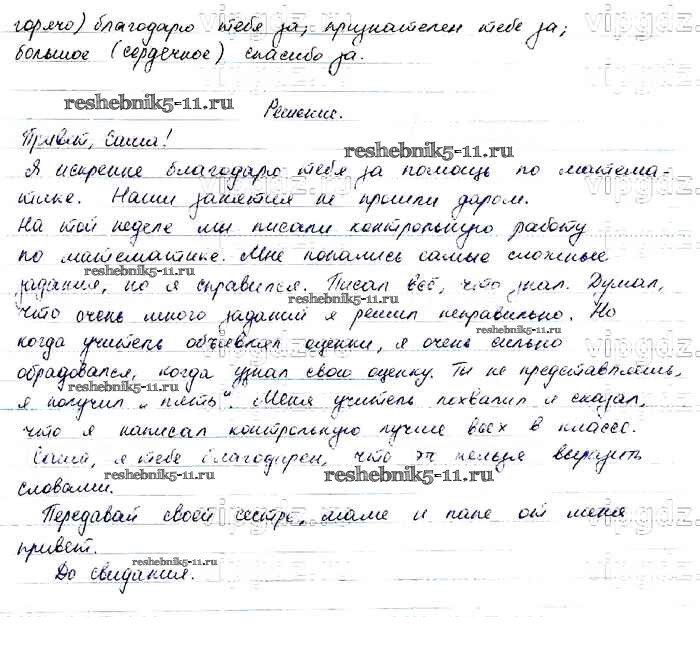 горячо) благодарю тебя за; признателен тебе за;
большое (сердечное) спасибо за.
Решение.
Привет, Саша!
Я искренне благодарю тебя за помощь по матема-
тике. Наши занятия не прошли даром.
На той неделе мы писали контрольную работу
по математике. Мне попались самые сложные
задания, но я справился. Писал всё, что знал. Думал,
что очень много заданий я решил неправильно. Но
когда учитель объявлял оценки, я очень сильно
обрадовался, когда узнал свою оценку. Ты не представляешь,
я получил „пять“. Меня учитель похвалил и сказал,
что я написал контрольную лучше всех в классе.
я тебе благодарен, что нельзя выразить
словами.
Передавай своей сестре, маме и папе от меня
привет.
До свидания.
vipgdz.
vipgdz.
reshebnik5-11.ru
reshebnik5-11.ru
vipgdz.
reshebnik5-11.ru
reshebnik5-11.ru
reshebnik5-11.ru
vipgdz.
reshebnik5-11.ru
reshebnik5-11.ru
reshebnik5-11.ru
vipgdz.
reshebnik5-11.ru